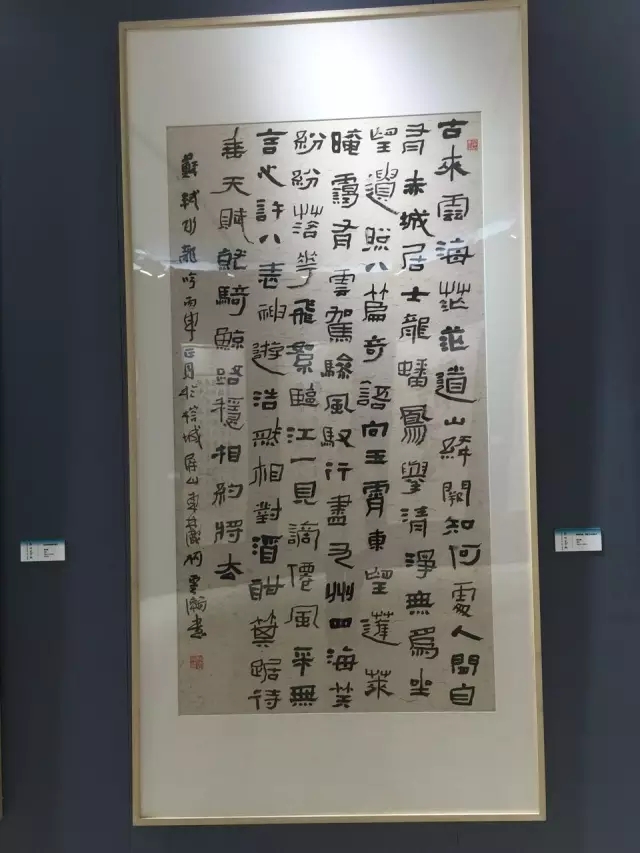 古來雲海茫茫道山絳闕知何處人間自
有赤城居士龍蟠鳳舉清淨無爲坐
望遺照八篇奇語向玉霄東望蓬萊
晻靄有雲駕驂風馭行盡九州四海笑
紛紛落花飛絮臨江一見謫僊風采無
言心許八表神遊浩然相對酒酣箕踞待
垂天賦就騎鯨路穩相約將去
蘇軾水龍吟正月於榕城屏山東麓書